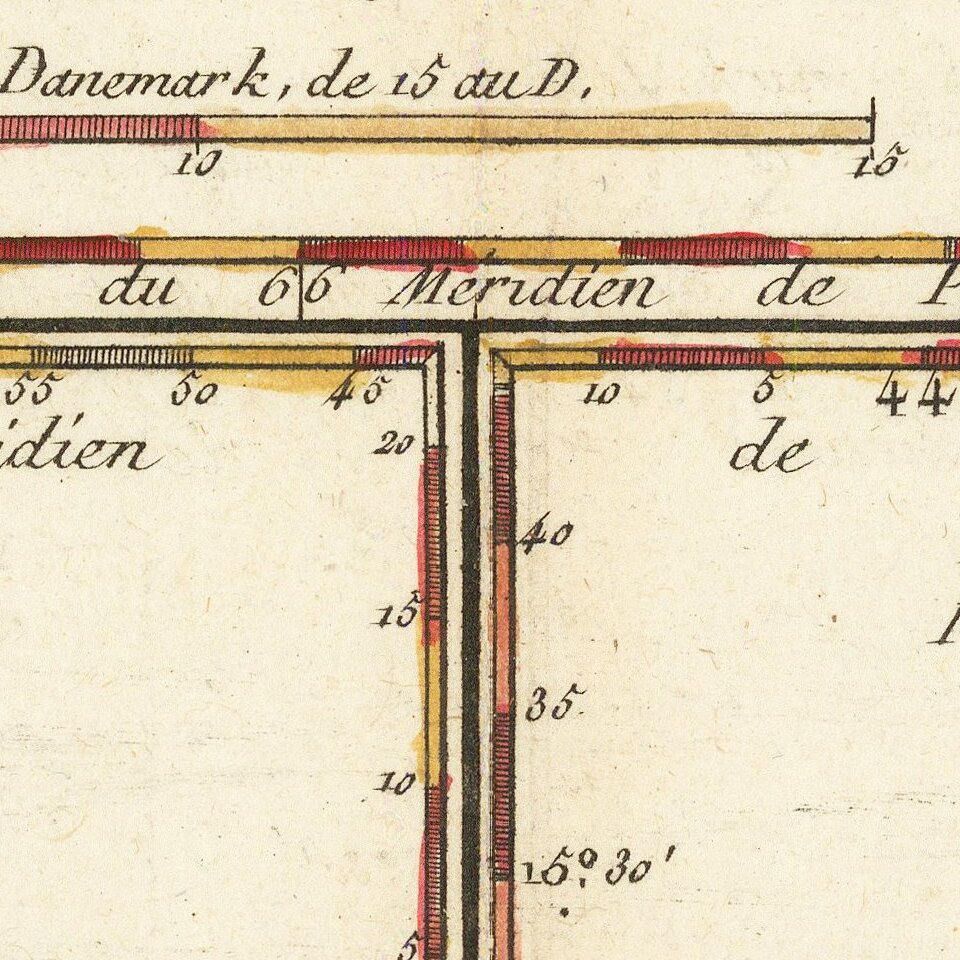 Danemark, de 15 au D.
10 15
du 66 Méridien de
55 50 45 10 5 44
idien de
20
40
15
35
10
15.° 30'
5